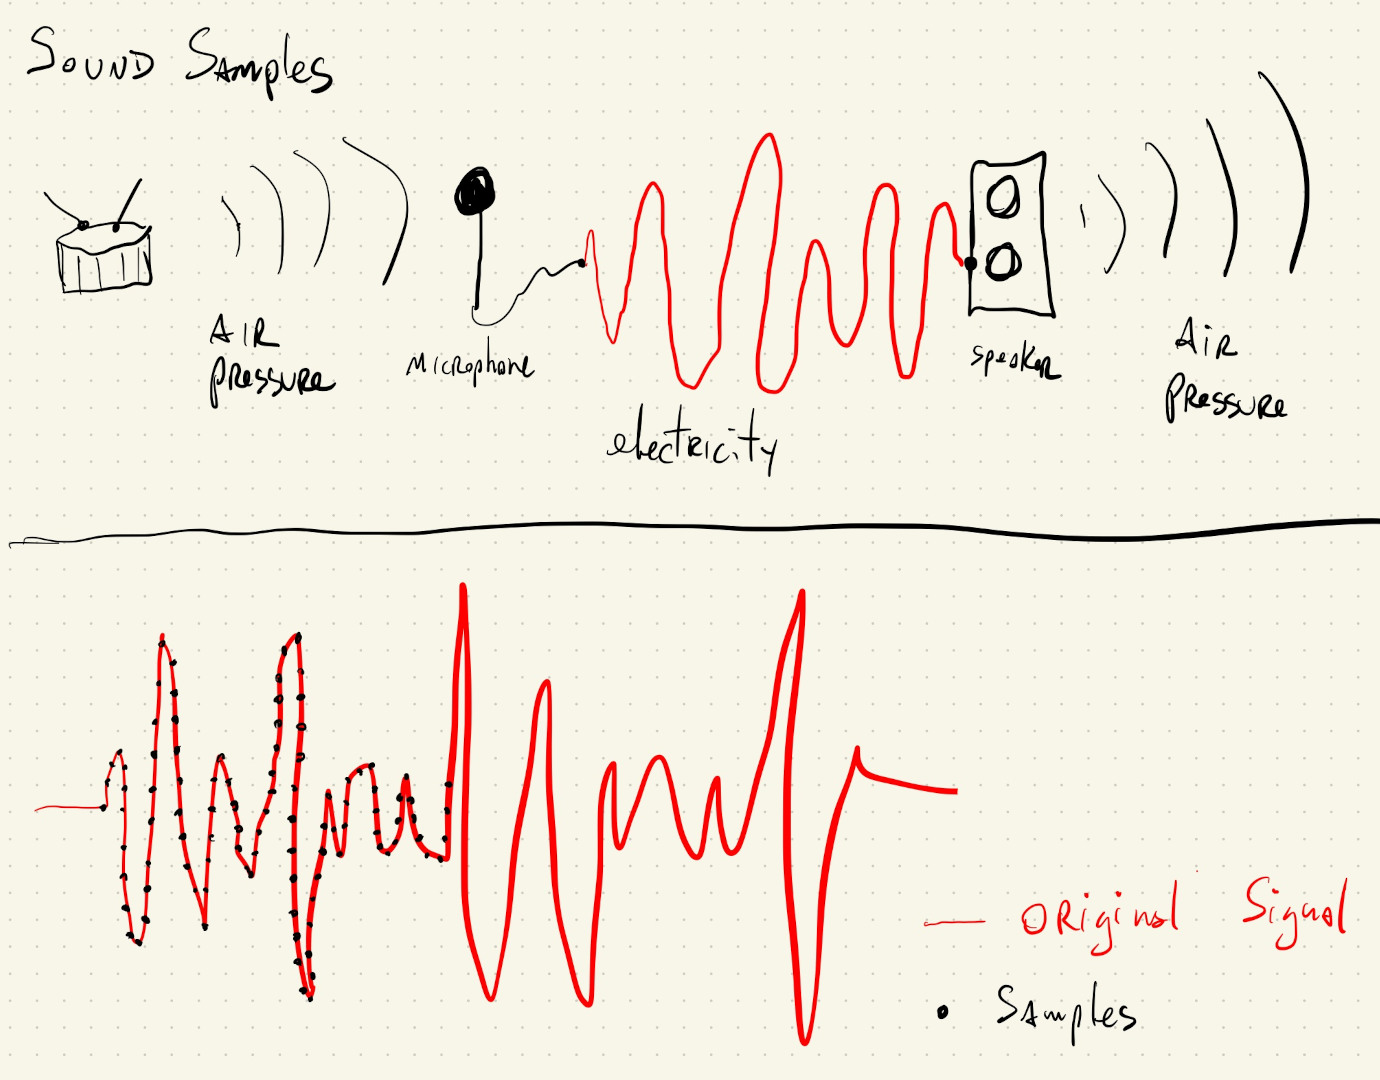 Sound Samples
AIR
PRessuRe
MicRophone
electRicity
speakeR
AiR
PRessuRe
ORiginal Signal
Samples